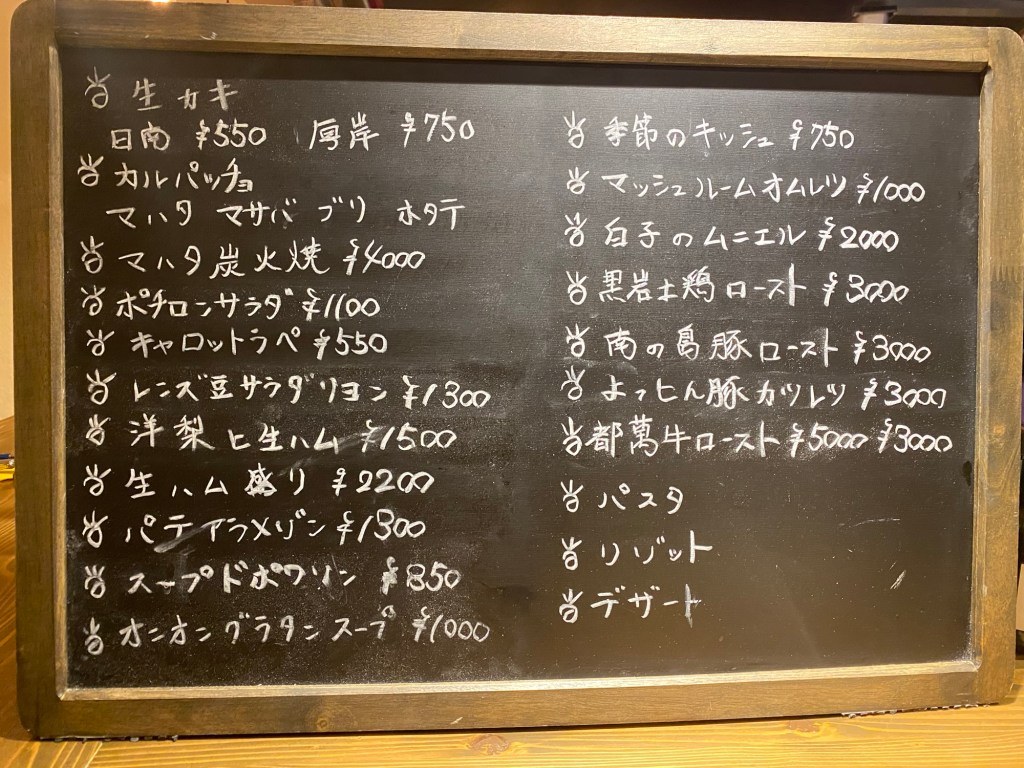 生カキ
日南 ¥550 厚岸 ¥750
カルパッチョ
マハタ マサバ ブリ ホタテ
マハタ炭火焼 ¥4000
ポチロンサラダ ¥1100
キャロットラペ ¥550
レンズ豆サラダリヨン ¥1300
洋梨と生ハム ¥1500
生ハム盛り ¥2200
パテアラメゾン ¥1300
スープドポワソン ¥850
オニオングラタンスープ ¥1000
季節のキッシュ ¥750
マッシュルームオムレツ ¥1000
白子のムニエル ¥2000
黒岩土鶏ロースト ¥3000
南の島豚ロースト ¥3000
よっとん豚カツレツ ¥3000
都萬牛ロースト ¥5000 ¥3000
パスタ
リゾット
デザート